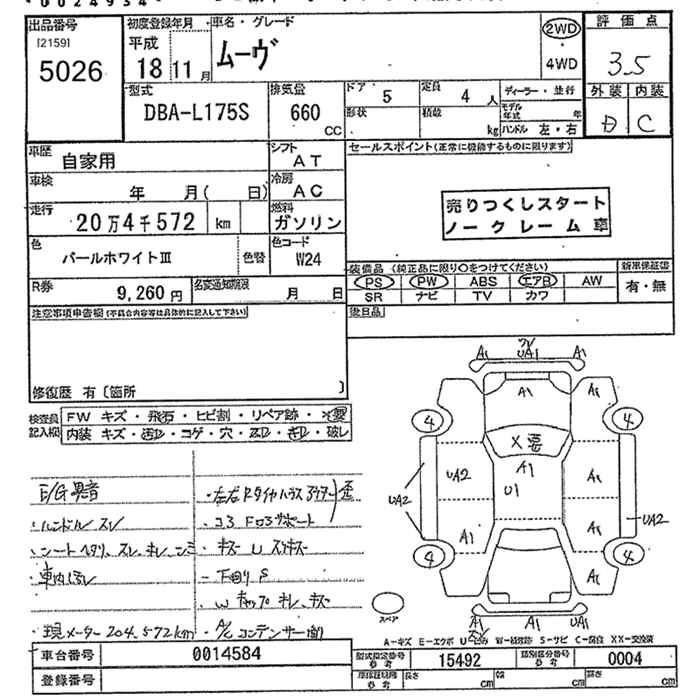 出品番号
[2159]
5026
初度登録年月
平成
18 11 月
車名・グレード
ムーヴ
2WD
・
4WD
評価点
3.5
外装 内装
D C
型式
DBA-L175S
排気量
660
CC
ドア 5
定員 4 人
形状
積載 kg
ディーラー・並行
モデル年式 年
ハンドル 左・右
車歴
自家用
シフト
AT
車検
年 月( 日)
冷房
AC
走行
20万4千572 km
燃料
ガソリン
色
パールホワイトⅢ
色替
色コード
W24
R券
9,260 円
名変通知期限
月 日
セールスポイント(正常に機能するものに限ります)
売りつくしスタート
ノークレーム車
装備品 (純正品に限り○をつけてください)
新車保証書
PS PW ABS エアB AW
有・無
SR ナビ TV カワ
後日品
注意事項申告欄(不具合内容等は具体的に記入して下さい)
修復歴 有〔箇所 〕
検査員
記入欄
FW キズ・飛石・ヒビ割・リペア跡・要変
内装 キズ・汚レ・コゲ・穴・スレ・キレ・破レ
E/G異音
・ハンドル スレ
・シートヘタリ、スレ、キレ、シミ
・車内汚レ
・現メーター 204,572km
・コアF ロアサポート
・キズ U スリキズ
・下回り S
・A/C コンデンサー
A1 UA1 A1
A1 A1
X 悪
4 4
UA2 A1 A1
U1
UA2 UA2
A1 A1
4 4
A1
A1 A1 UA1
スペア
A-キズ E-エクボ U-凹み W-補修跡 S-サビ C-腐食 XX-交換済
車台番号 0014584
登録番号
型式指定番号
参考
15492
類別区分番号
参考
0004
車体証明
参考
長さ cm 幅 cm 高さ cm